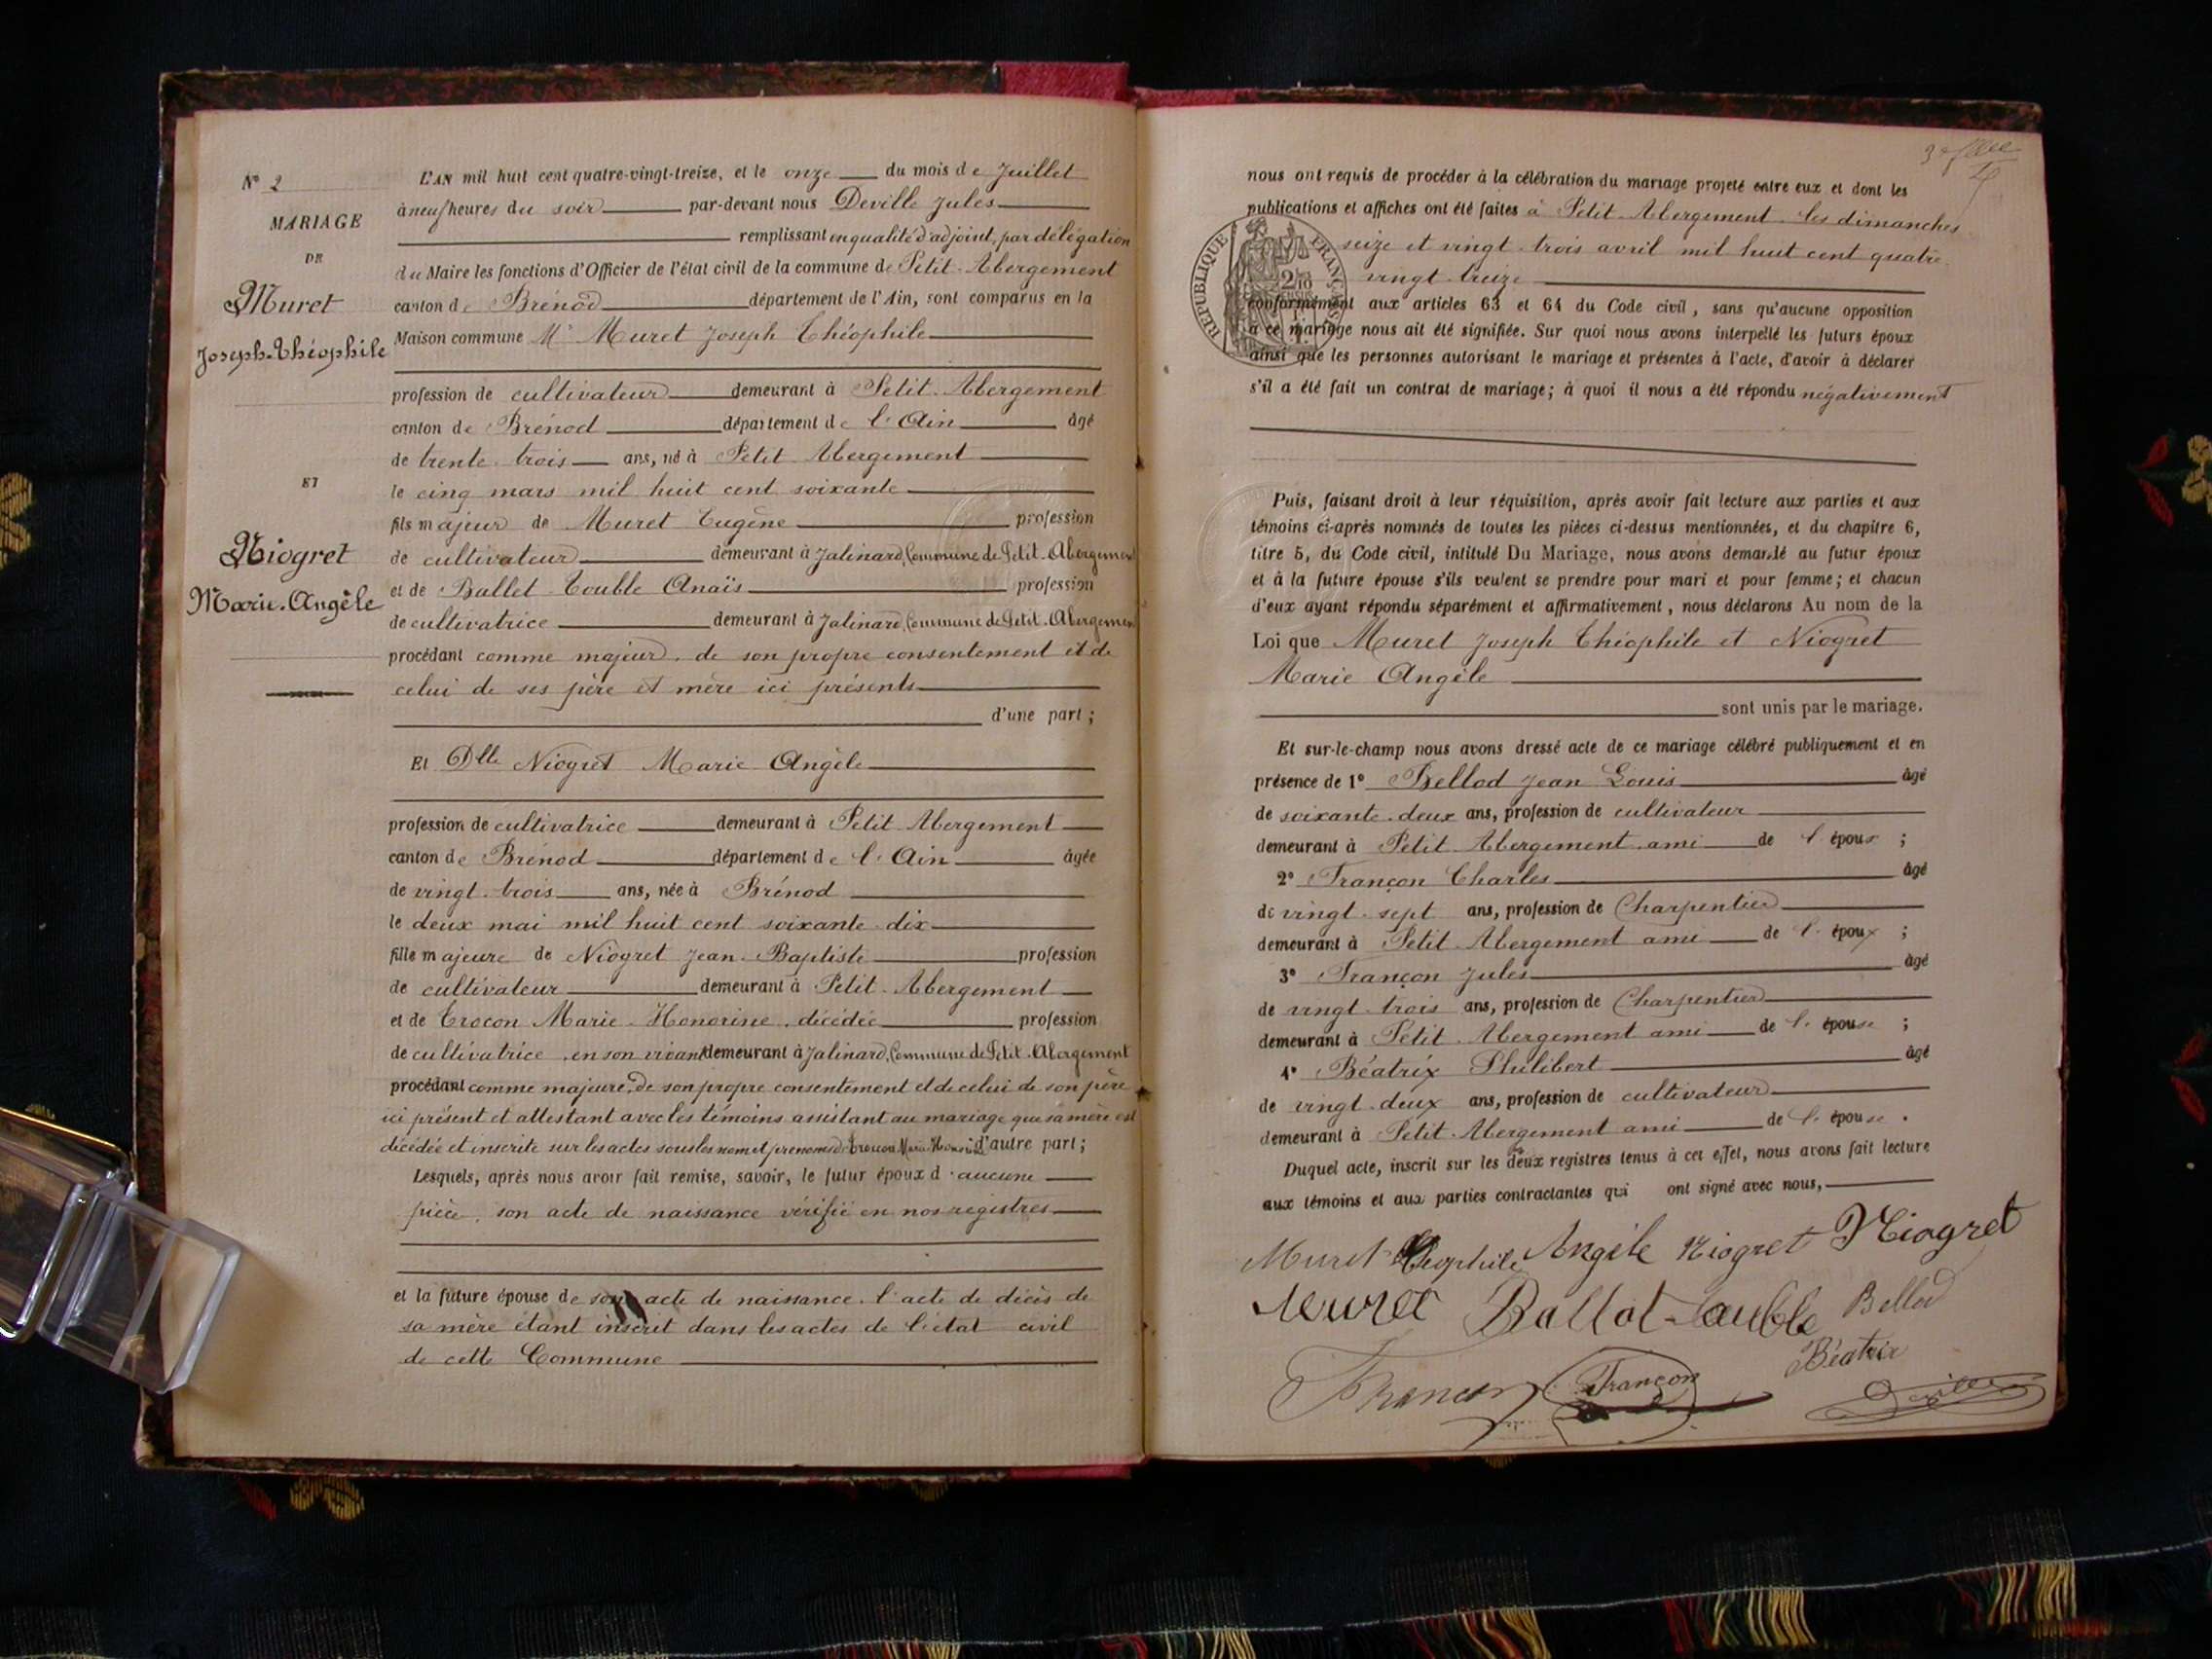 N° 2
MARIAGE
DE
Muret
Joseph-Théophile
ET
Niogret
Marie-Angèle
L'AN mil huit cent quatre-vingt-treize, et le onze du mois de Juillet
à neuf heures du soir par-devant nous Deville Jules
remplissant en qualité d'adjoint, par délégation
du Maire les fonctions d'Officier de l'état civil de la commune de Petit-Abergement
canton de Brénod département de l'Ain, sont comparus en la
Maison commune Mr Muret Joseph Théophile
profession de cultivateur demeurant à Petit-Abergement
canton de Brénod département de l'Ain âgé
de trente-trois ans, né à Petit Abergement
le cinq mars mil huit cent soixante
fils majeur de Muret Eugène profession
de cultivateur demeurant à Jalinard, Commune de Petit-Abergement
et de Ballet-Touble Anaïs profession
de cultivatrice demeurant à Jalinard, Commune de Petit-Abergement
procédant comme majeur, de son propre consentement et de
celui de ses père et mère ici présents
d'une part ;
Et Dlle Niogret Marie Angèle
profession de cultivatrice demeurant à Petit-Abergement
canton de Brénod département de l'Ain âgée
de vingt-trois ans, née à Brénod
le deux mai mil huit cent soixante-dix
fille majeure de Niogret Jean-Baptiste profession
de cultivateur demeurant à Petit-Abergement
et de Trocon Marie-Honorine, décédée profession
de cultivatrice, en son vivant demeurant à Jalinard, Commune de Petit-Abergement
procédant comme majeure, de son propre consentement et de celui de son père
ici présent et attestant avec les témoins assistant au mariage que sa mère est
décédée et inscrite sur les actes sous les nom et prénoms de Trocon Marie-Honorine d'autre part ;
Lesquels, après nous avoir fait remise, savoir, le futur époux d'aucune
pièce, son acte de naissance vérifié en nos registres
et la future épouse de son acte de naissance, l'acte de décès de
sa mère étant inscrit dans les actes de l'état civil
de cette Commune
nous ont requis de procéder à la célébration du mariage projeté entre eux et dont les
publications et affiches ont été faites à Petit-Abergement les dimanches
seize et vingt-trois avril mil huit cent quatre-
vingt-treize
RÉPUBLIQUE FRANÇAISE
2/10
conformément aux articles 63 et 64 du Code civil, sans qu'aucune opposition
à ce mariage nous ait été signifiée. Sur quoi nous avons interpellé les futurs époux
ainsi que les personnes autorisant le mariage et présentes à l'acte, d'avoir à déclarer
s'il a été fait un contrat de mariage ; à quoi il nous a été répondu négativement
Puis, faisant droit à leur réquisition, après avoir fait lecture aux parties et aux
témoins ci-après nommés de toutes les pièces ci-dessus mentionnées, et du chapitre 6,
titre 5, du Code civil, intitulé Du Mariage, nous avons demandé au futur époux
et à la future épouse s'ils veulent se prendre pour mari et pour femme ; et chacun
d'eux ayant répondu séparément et affirmativement, nous déclarons Au nom de la
Loi que Muret Joseph Théophile et Niogret
Marie Angèle
sont unis par le mariage.
Et sur-le-champ nous avons dressé acte de ce mariage célébré publiquement et en
présence de 1° Bellod Jean Louis âgé
de soixante-deux ans, profession de cultivateur
demeurant à Petit-Abergement ami de l'époux ;
2° Françon Charles âgé
de vingt-sept ans, profession de Charpentier
demeurant à Petit-Abergement ami de l'époux ;
3° Françon Jules âgé
de vingt-trois ans, profession de Charpentier
demeurant à Petit Abergement ami de l'épouse ;
4° Béatrix Philibert âgé
de vingt-deux ans, profession de cultivateur
demeurant à Petit-Abergement ami de l'épouse .
Duquel acte, inscrit sur les deux registres tenus à cet effet, nous avons fait lecture
aux témoins et aux parties contractantes qui ont signé avec nous,
Muret Théophile Angèle Niogret Niogret
Muret Ballet-Touble Bellod
Béatrix
Françon Françon Deville